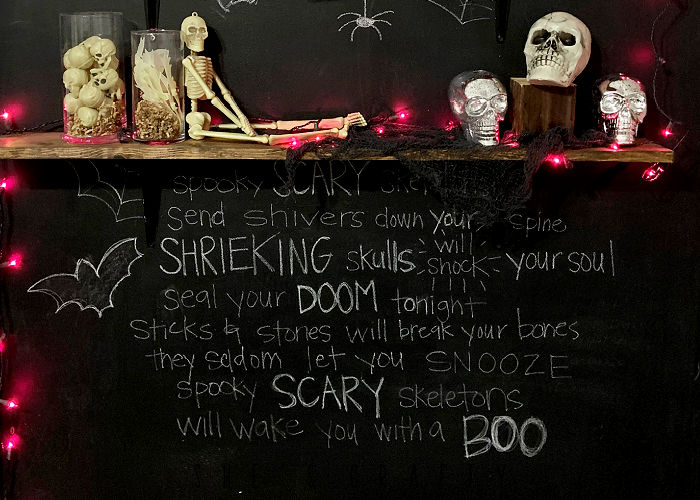 spooky SCARY skeletons
Send shivers down your spine
SHRIEKING skulls will shock your soul
seal your DOOM tonight
sticks & stones will break your bones
they seldom let you SNOOZE
spooky SCARY skeletons
will wake you with a BOO